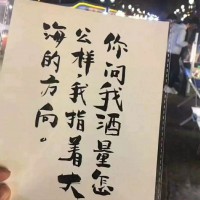 你问我酒量怎
公样，我指着大
海的方向。